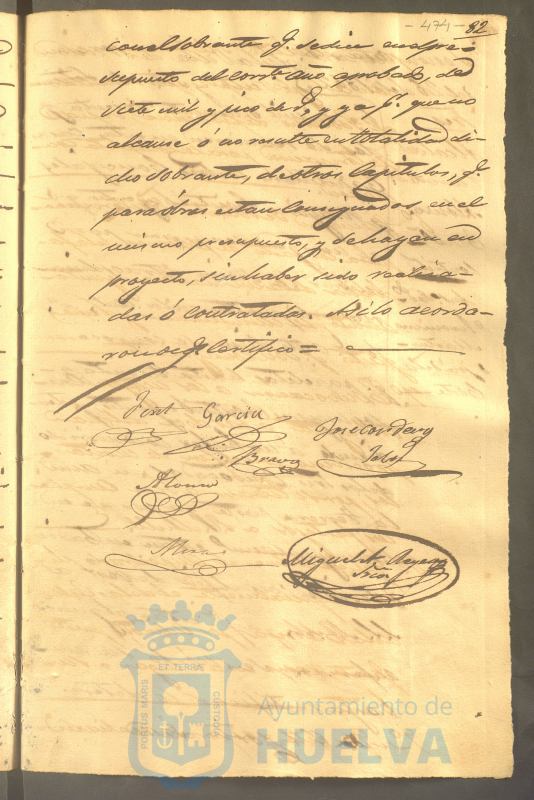 - 474 - 82
con el sobrante q.e se dice en el pre-
supuesto del corr.te año aprobado, de
siete mil y pico de r.s, y ya p.r que no
alcanse ó no resulte en totalidad di-
cho sobrante, de otros Capitulos, q.e
para obras estan Consignados en el
mismo presupuesto, y se hayen en
proyecto, sin haber sido realiza-
das ó contratadas. Asi lo acorda-
ron de q.e Certifico =
Garcia
Bravo
Alonso
Mora
Miguel
Srio
PORTUS MARIS ET TERRÆ CUSTODIA
Ayuntamiento de
HUELVA